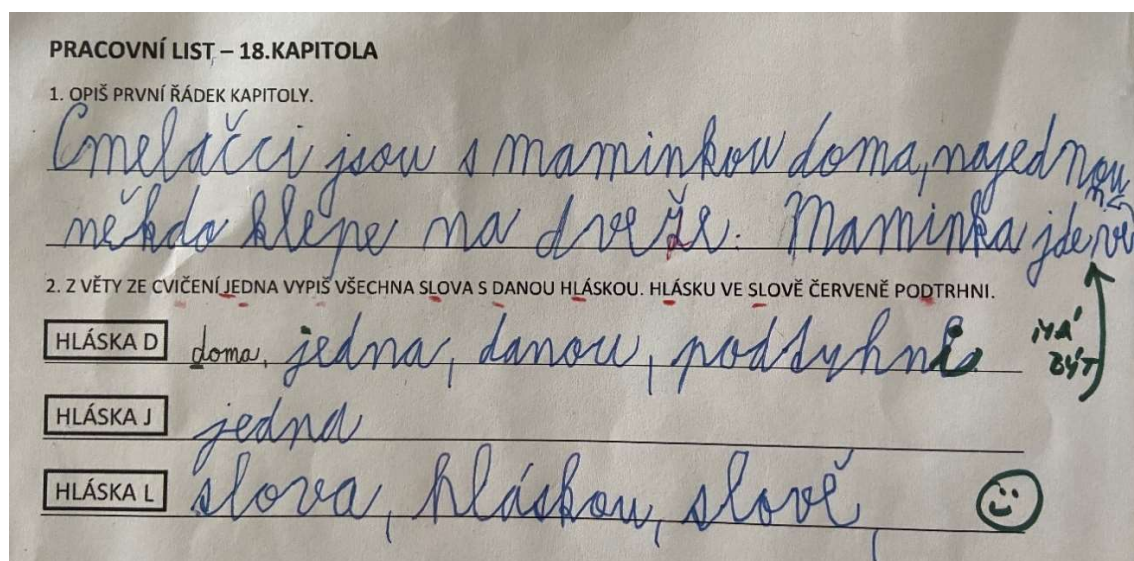 PRACOVNÍ LIST – 18.KAPITOLA
1. OPIŠ PRVNÍ ŘÁDEK KAPITOLY.
Čmeláčci jsou s maminkou doma, najednou
někdo klepe na dveře. Maminka jde
2. Z VĚTY ZE CVIČENÍ JEDNA VYPIŠ VŠECHNA SLOVA S DANOU HLÁSKOU. HLÁSKU VE SLOVĚ ČERVENĚ PODTRHNI.
HLÁSKA D doma, jedna, danou, poddyhni
MÁ BÝT
HLÁSKA J jedna
HLÁSKA L slova, hláskou, slově,